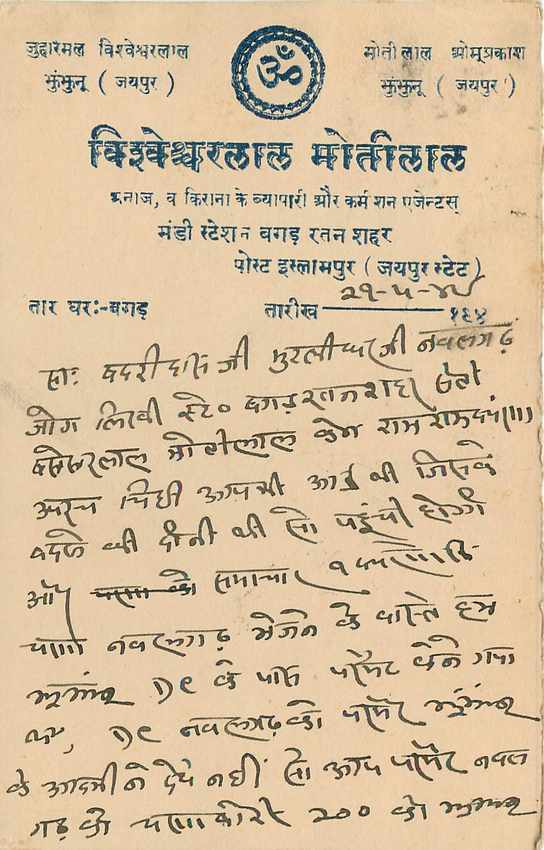 जुहारमल विश्वेश्वरलाल
झुंझुनू ( जयपुर )
ॐ
मोतीलाल ओमप्रकाश
झुंझुनू ( जयपुर )
विश्वेश्वरलाल मोतीलाल
अनाज, व किराना के व्यापारी और कमीशन एजेन्टस्
मंडी स्टेशन बगड़ रतन शहर
पोस्ट इस्लामपुर ( जयपुर स्टेट )
तार घर:-बगड़ तारीख २९-५-४५ १९४
बदरीदास जी मुरलीधर जी नवलगढ़
जोग लिखी स्टे० बगड़ रतनशहर सेती
मोतीलाल राम राम
चिठी आपकी आई थी जिसके
बदले की दीनी थी सो पहुंची होगी
और समाचार १
चणा नवलगढ़ भेजने के वास्ते हम
DC के पास परमिट लेने गया
था, DC नवलगढ़ को परमिट
के आदमी ने देवे नहीं सो आप परमिट नवल
गढ़ को चणा बोरी २०० को